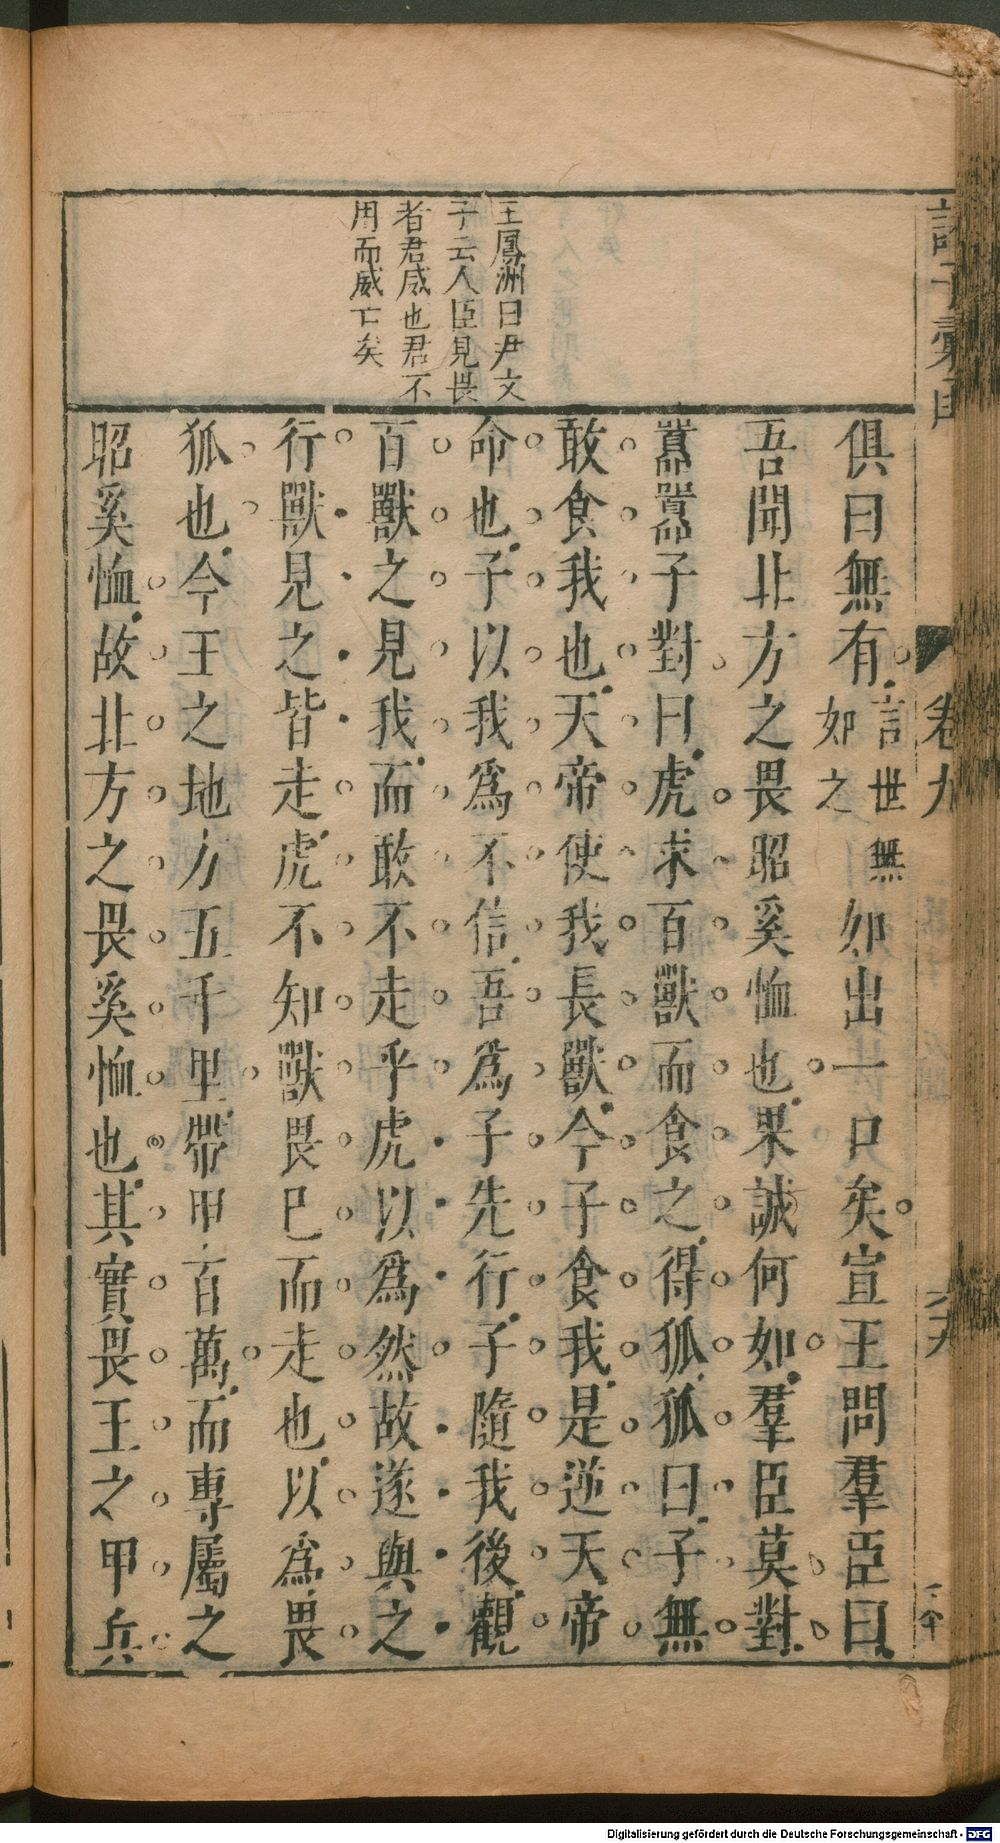 王鳳洲曰尹文
子云人臣見畏
者君威也君不
用而威亡矣
卷九
俱曰無有言世無如之如出一口矣宣王問羣臣曰
吾聞北方之畏昭奚恤也果誠何如羣臣莫對
囂囂子對曰虎求百獸而食之得狐狐曰子無
敢食我也天帝使我長獸今子食我是逆天帝
命也子以我為不信吾為子先行子隨我後觀
百獸之見我而敢不走乎虎以為然故遂與之
行獸見之皆走虎不知獸畏巳而走也以為畏
狐也今王之地方五千里帶甲百萬而專屬之
昭奚恤故北方之畏奚恤也其實畏王之甲兵
Digitalisierung gefördert durch die Deutsche Forschungsgemeinschaft - DFG